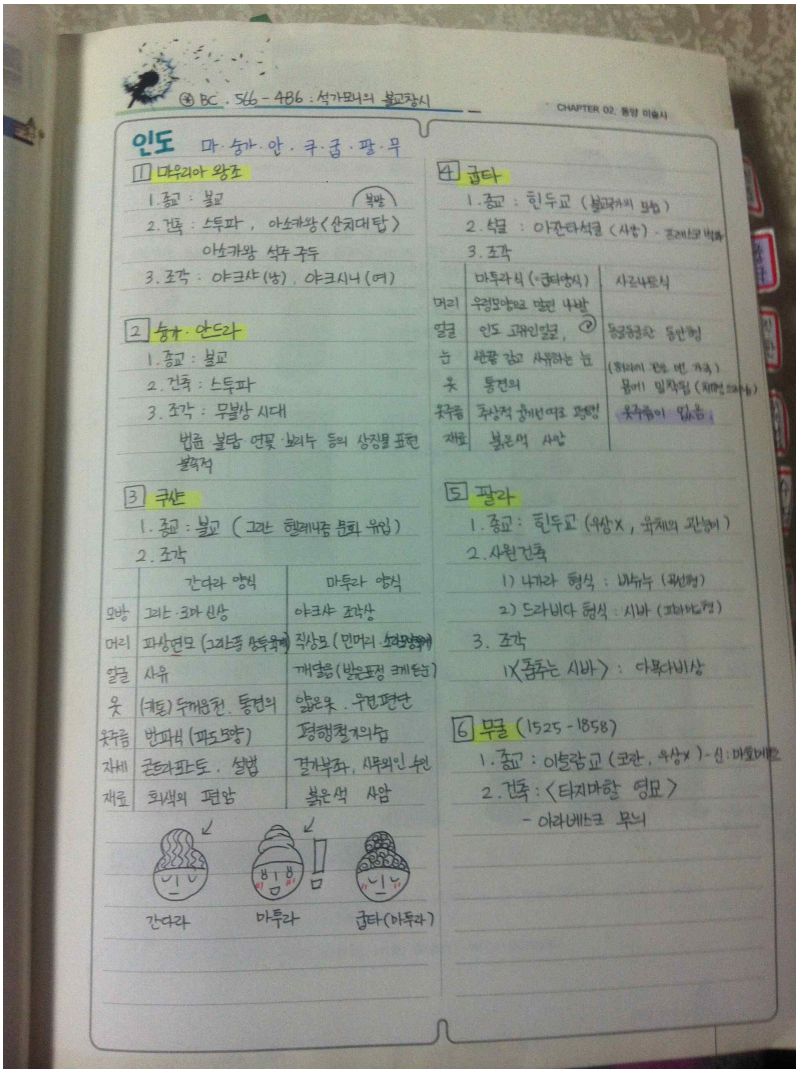 ⊛ BC. 566-486 : 석가모니의 불교창시
CHAPTER 02. 동양 미술사
인도 마·숭가·안·쿠·굽·팔·무
1 마우리아 왕조
1. 종교 : 불교
복발
2. 건축 : 스투파, 아소카왕<산치대탑>
아소카왕 석주 주두
3. 조각 : 야크샤(남), 야크시니(여)
2 숭가·안드라
1. 종교 : 불교
2. 건축 : 스투파
3. 조각 : 무불상 시대
법륜·불탑·연꽃·보리수 등의 상징물 표현
불족적
3 쿠샨
1. 종교 : 불교 (그리스 헬레니즘 문화 유입)
2. 조각
간다라 양식 마투라 양식
모방 그리스·로마 신상 야크샤 조각상
머리 파상연모 (그리스풍 상투육계) 직상모 (민머리·소라모양육계)
얼굴 사유 깨달음 (밝은표정 크게 뜬 눈)
옷 (키톤) 두꺼운천, 통견의 얇은옷, 우견편단
옷주름 반파식 (파도모양) 평행철지의습
자세 콘트라포스토, 설법 결가부좌, 시무외인 수인
재료 회색의 편암 붉은색 사암
간다라 마투라 굽타(마투라)
4 굽타
1. 종교 : 힌두교 (불교와의 융합)
2. 석굴 : 아잔타석굴 (사암) · 프레스코 벽화
3. 조각
마투라식 (=굽타양식) 사르나트식
머리 우렁모양으로 말린 나발
얼굴 인도 고유인얼굴, 둥글둥글한 동안형
눈 반쯤 감고 사유하는 눈
옷 통견의 몸에 밀착됨
옷주름 추상적 평행 옷주름이 없음
재료 붉은색 사암
5 팔라
1. 종교 : 힌두교 (우상X, 육체의 관능미)
2. 사원건축
1) 나가라 형식 : 비슈누 (곡선형)
2) 드라비다 형식 : 시바 (피라미드형)
3. 조각
1)<춤추는 시바> : 다목다비상
6 무굴 (1525-1858)
1. 종교 : 이슬람교 (코란, 우상X) - 신 : 마호메트
2. 건축 : <타지마할 영묘>
- 아라베스크 무늬